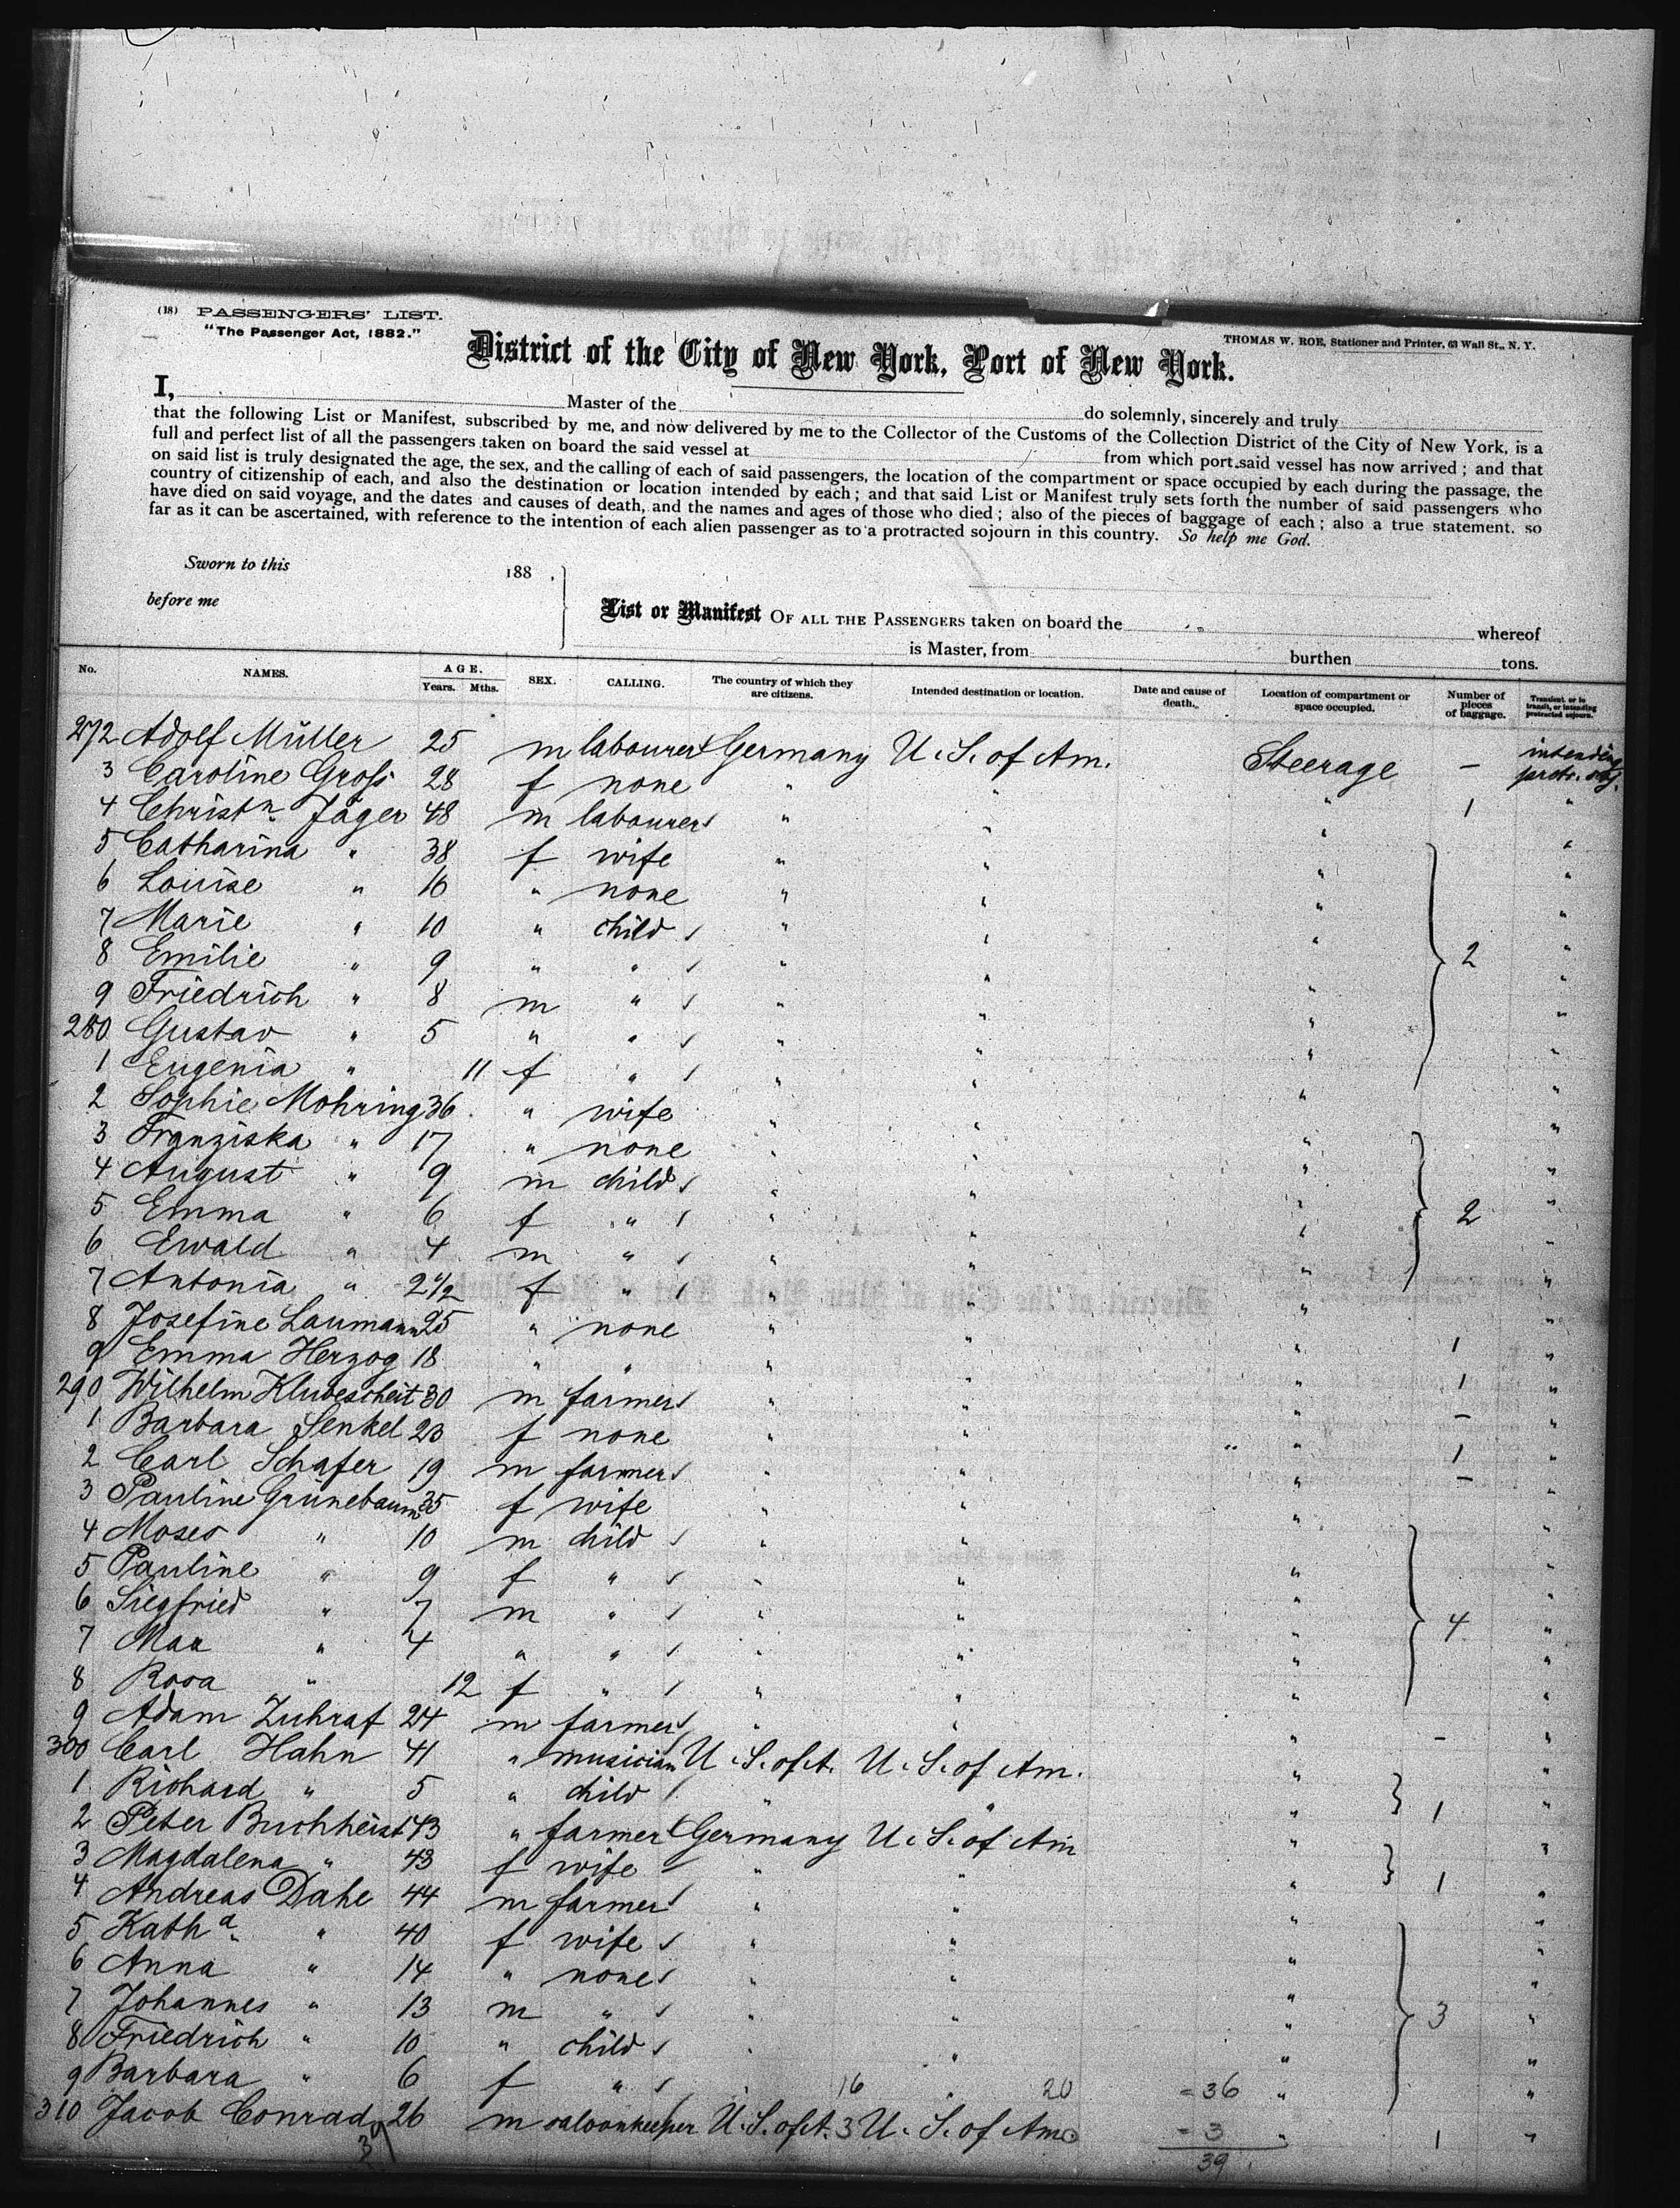 (18) PASSENGERS' LIST.
"The Passenger Act, 1882."
THOMAS W. ROE, Stationer and Printer, 63 Wall St., N. Y.
District of the City of New York, Port of New York.
I, Master of the do solemnly, sincerely and truly
that the following List or Manifest, subscribed by me, and now delivered by me to the Collector of the Customs of the Collection District of the City of New York, is a
full and perfect list of all the passengers taken on board the said vessel at from which port said vessel has now arrived; and that
on said list is truly designated the age, the sex, and the calling of each of said passengers, the location of the compartment or space occupied by each during the passage, the
country of citizenship of each, and also the destination or location intended by each; and that said List or Manifest truly sets forth the number of said passengers who
have died on said voyage, and the dates and causes of death, and the names and ages of those who died; also of the pieces of baggage of each; also a true statement, so
far as it can be ascertained, with reference to the intention of each alien passenger as to a protracted sojourn in this country. So help me God.
Sworn to this 188 .
before me
List or Manifest OF ALL THE PASSENGERS taken on board the whereof
is Master, from burthen tons.
No. NAMES. AGE. Years. Mths. SEX. CALLING. The country of which they are citizens. Intended destination or location. Date and cause of death. Location of compartment or space occupied. Number of pieces of baggage. Transient, or in transit, or intending protracted sojourn.
272 Adolf Müller 25 m labourer Germany U. S. of Am. Steerage – intending protr. soj.
3 Caroline Groß 28 f none " " " 1 "
4 Christn Jäger 48 m labourer " " " "
5 Catharina " 38 f wife " " " "
6 Louise " 16 " none " " " "
7 Marie " 10 " child " " " "
8 Emilie " 9 " " " " " 2 "
9 Friedrich " 8 m " " " " "
280 Gustav " 5 " " " " " "
1 Eugenia " 11 f " " " " "
2 Sophie Mohring 36 " wife " " " "
3 Franziska " 17 " none " " " "
4 August " 9 m child " " " "
5 Emma " 6 f " " " " 2 "
6 Ewald " 4 m " " " " "
7 Antonia " 2 1/2 f " " " " "
8 Josefine Laumann 25 " none " " " 1 "
9 Emma Herzog 18 " " " " " 1 "
290 Wilhelm Kluvescheit 30 m farmer " " " – "
1 Barbara Senkel 23 f none " " " 1 "
2 Carl Schafer 19 m farmer " " " – "
3 Pauline Grünebaum 35 f wife " " " "
4 Moses " 10 m child " " " "
5 Pauline " 9 f " " " " "
6 Siegfried " 7 m " " " " 4 "
7 Max " 4 " " " " " "
8 Rosa " 12 f " " " " "
9 Adam Zuhraf 24 m farmer " " " – "
300 Carl Hahn 41 " musician U. S. of A. U. S. of Am. " "
1 Richard " 5 " child " " " 1 "
2 Peter Buchheist 43 " farmer Germany U. S. of Am " "
3 Magdalena " 43 f wife " " " 1 "
4 Andreas Dahe 44 m farmer " " " "
5 Katha " 40 f wife " " " "
6 Anna " 14 " none " " " "
7 Johannes " 13 m " " " " 3 "
8 Friedrich " 10 " child " " " "
9 Barbara " 6 f " 16 " 20 = 36 " "
310 Jacob Conrad 26 m saloonkeeper U. S. of A. 3 U. S. of Am = 3 " 1 "
39 39